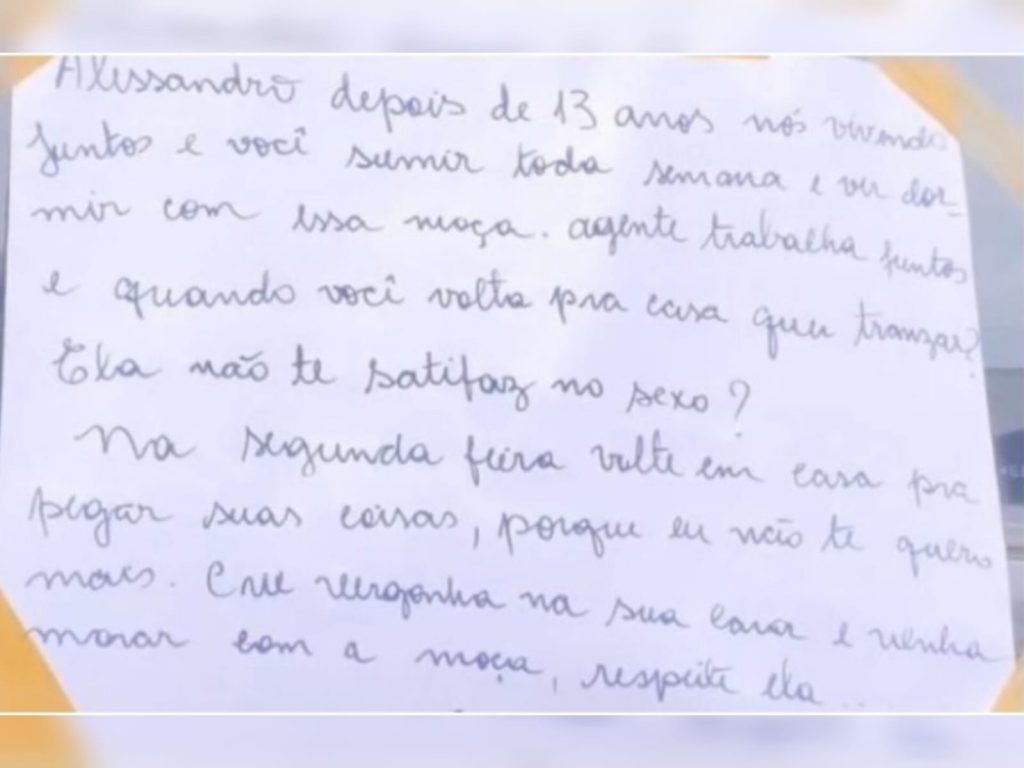 Alessandro depois de 13 anos nós vivendo
juntos e você sumir toda semana e vir dor-
mir com essa moça. agente trabalha juntos
e quando você volta pra casa quer tranzar?
Ela não te satifaz no sexo?
Na segunda feira volte em casa pra
pegar suas coisas, porque eu não te quero
mais. Crie vergonha na sua cara e venha
morar com a moça, respeite ela...